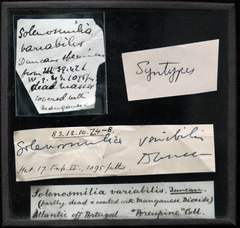 Solenosmilia
variabilis
Duncan
dead masses
covered with
manganese
Syntypes
83.12.10.74-8
Solenosmilia variabilis
Duncan
Hat. 17. 1095 fths
Solenosmilia variabilis. Duncan.
(partly dead & coated with Manganese Dioxide)
Atlantic off Portugal "Porcupine" Coll.